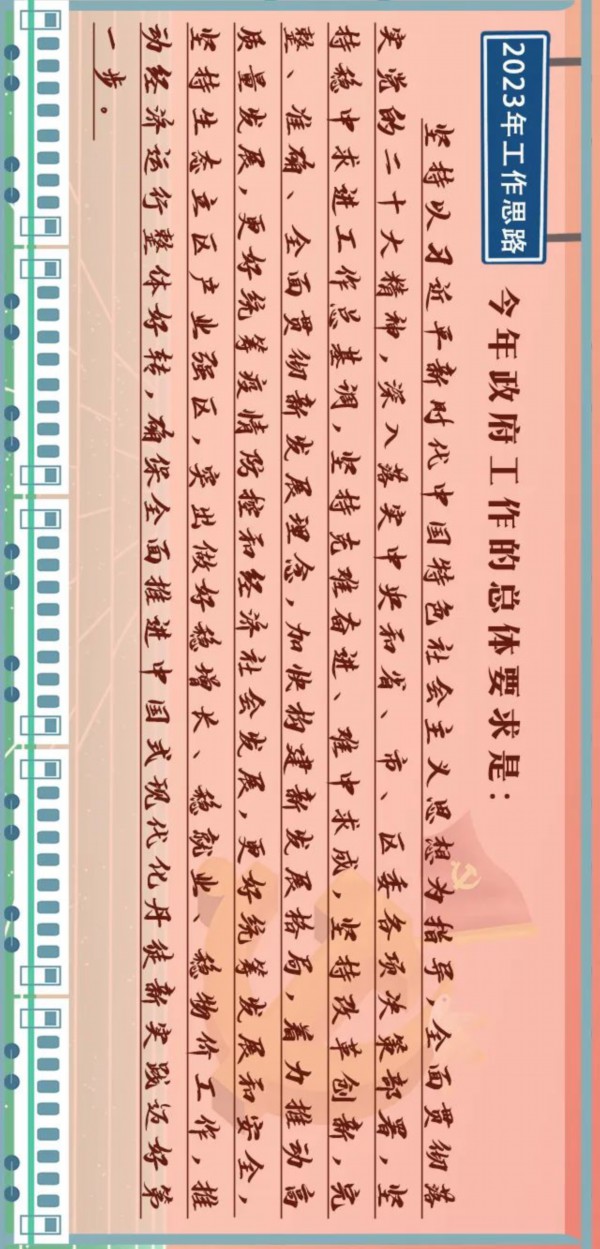 2023年工作思路
今年政府工作的总体要求是：
坚持以习近平新时代中国特色社会主义思想为指导，全面贯彻落
实党的二十大精神，深入落实中央和省、市、区委各项决策部署，坚
持稳中求进工作总基调，坚持克难奋进、难中求成，坚持改革创新，完
整、准确、全面贯彻新发展理念，加快构建新发展格局，着力推动高
质量发展，更好统筹疫情防控和经济社会发展，更好统筹发展和安全，
坚持生态立区产业强区，突出做好稳增长、稳就业、稳物价工作，推
动经济运行整体好转，确保全面推进中国式现代化丹徒新实践迈好第
一步。